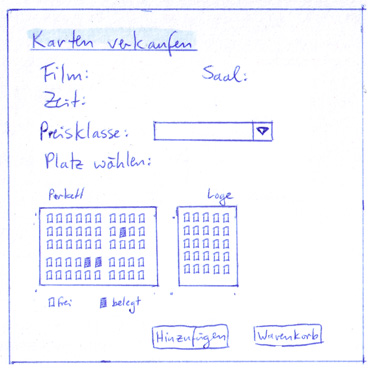 Karten verkaufen
Film: Saal:
Zeit:
Preisklasse:
Platz wählen:
Parkett Loge
frei belegt
Hinzufügen Warenkorb